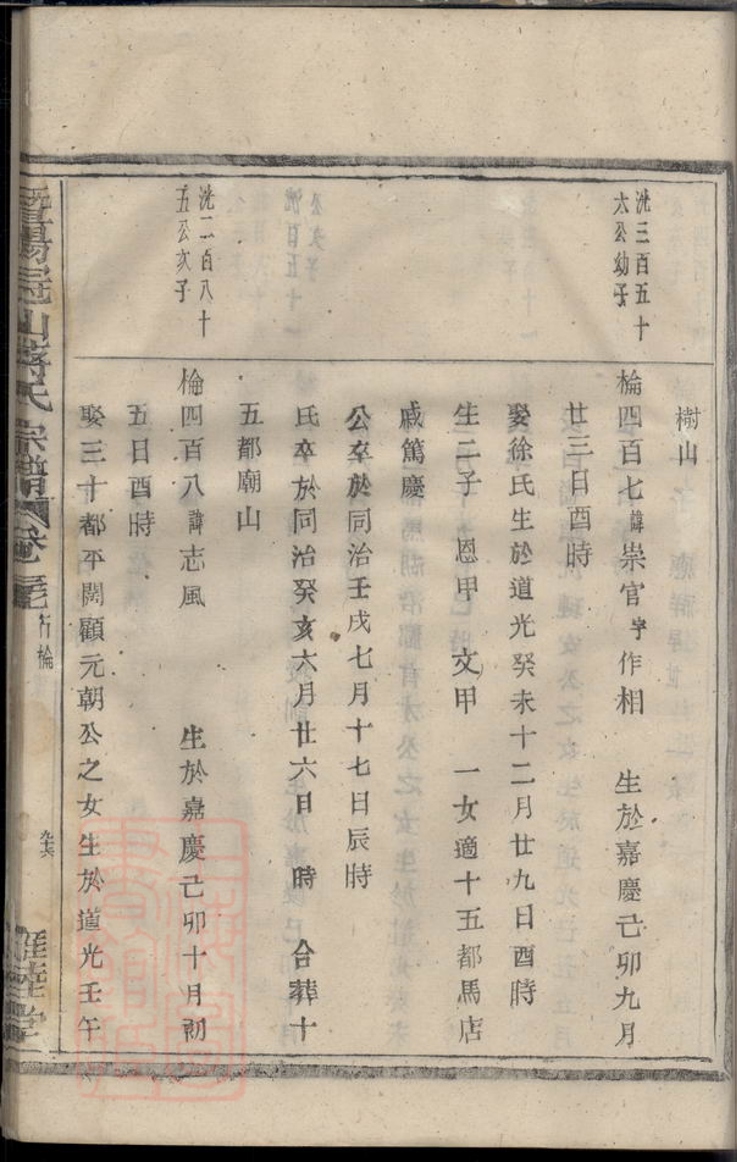 樹山
洸三百五十
六公幼子
棆四百七諱崇官字作相　生於嘉慶己卯九月
廿三日酉時
娶徐氏生於道光癸未十二月廿九日酉時
生二子　恩甲　文甲　一女適十五都馬店
戚篤慶
公卒於同治壬戌七月十七日辰時
氏卒於同治癸亥六月廿六日　時　合葬十
五都廟山
洸二百八十
五公次子
棆四百八諱志風　生於嘉慶己卯十月初
五日酉時
娶三十都平闊顧元朝公之女生於道光壬午
暨陽冠山蔣氏宗譜
卷
行棆